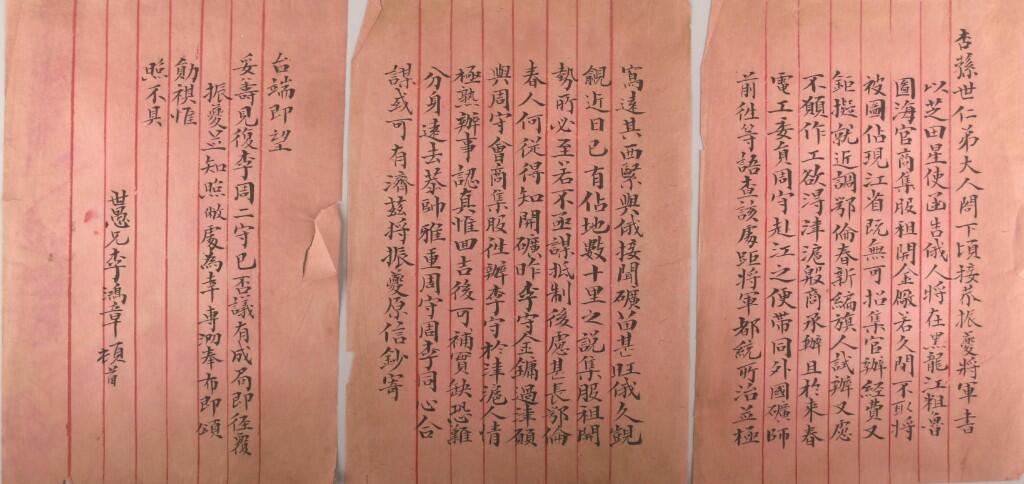 杏蓀世仁弟大人閣下頃接恭振夔將軍書
以芝田星使函告俄人將在黑龍江粗魯
圖海官商集股租開金廠若久閉不形將
被圖佔現江省既無可招集官辦經費又
鉅擬就近調鄂倫春新編旗人試辦又應
不願作工欲得津滬殷商承辦且於來春
電工委員周守赴江之便帶同外國礦師
前往等語查該處距將軍都統所治並極
寫遠其西緊與俄接聞礦苗甚旺俄久覬
覦近日已有佔地數十里之說集股租開
勢所必至若不亟謀抵制後慮甚長鄂倫
春人何從得知開礦昨李守金鏞過津願
與周守會商集股往辦李守於津滬人情
極熟辦事認真惟四吉後可補實缺恐難
分身遠去恭帥雅重周守周李同心合
謀或可有濟茲將振夔原信鈔寄
台端即望
妥籌見復李周二守已否議有成局即徑覆
振夔並知照敝處為幸專泐奉布即頌
勛祺惟
照不具
世愚兄李鴻章頓首